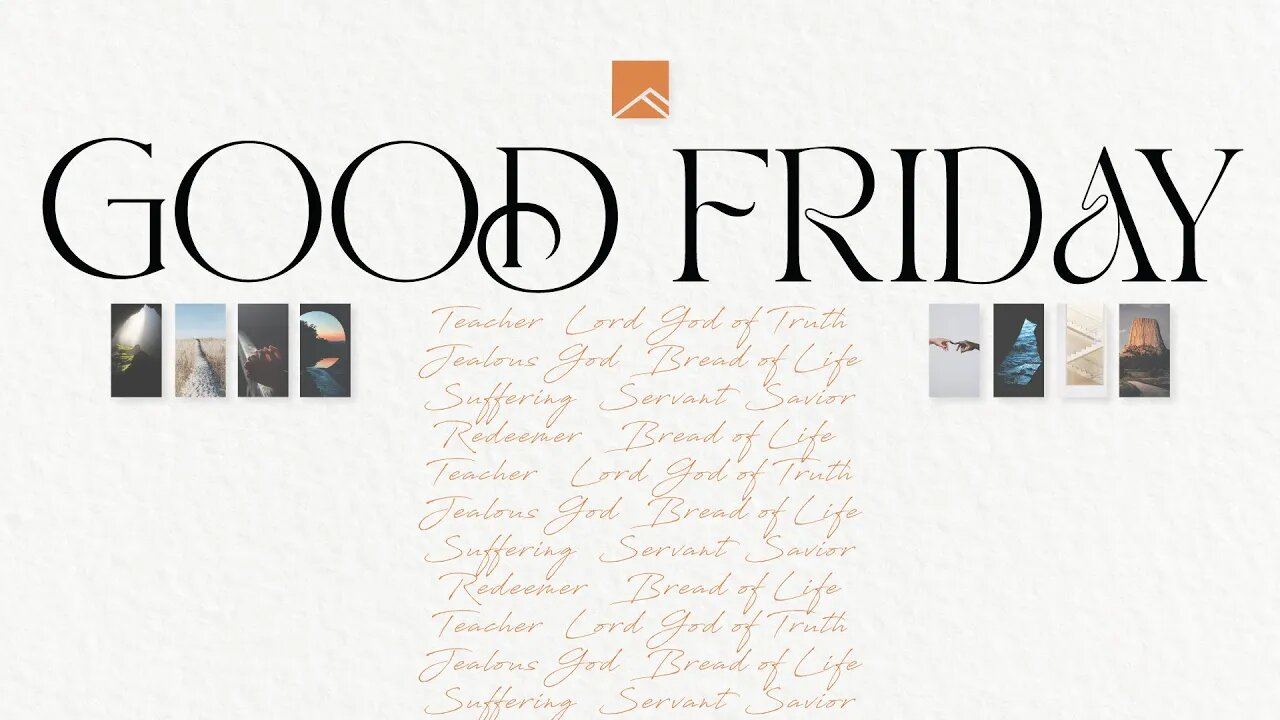 GOOD FRIDAY
Teacher Lord God of Truth
Jealous God Bread of Life
Suffering Servant Savior
Redeemer Bread of Life
Teacher Lord God of Truth
Jealous God Bread of Life
Suffering Servant Savior
Redeemer Bread of Life
Teacher Lord God of Truth
Jealous God Bread of Life
Suffering Servant Savior